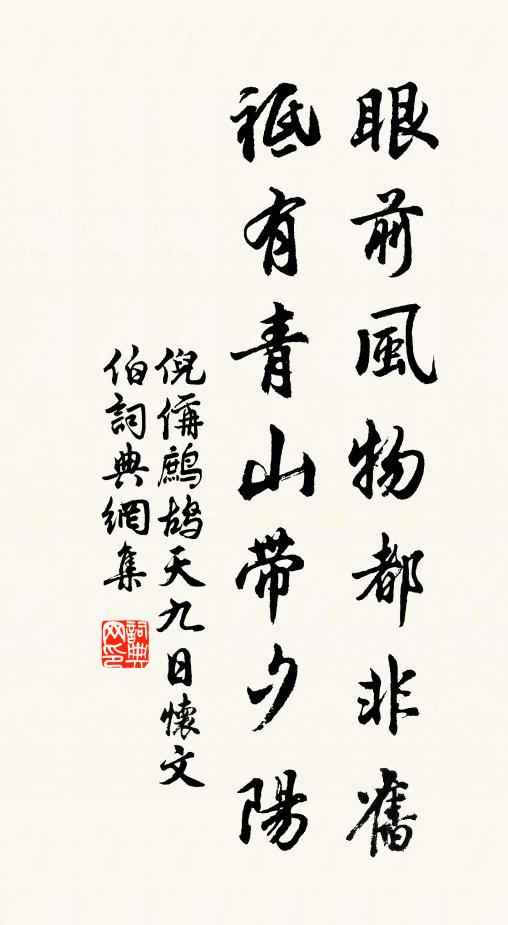 眼前風物都非舊
祗有青山帶夕陽
倪偁鷓鴣天九日懷文
伯詞典網集
詞典
网印